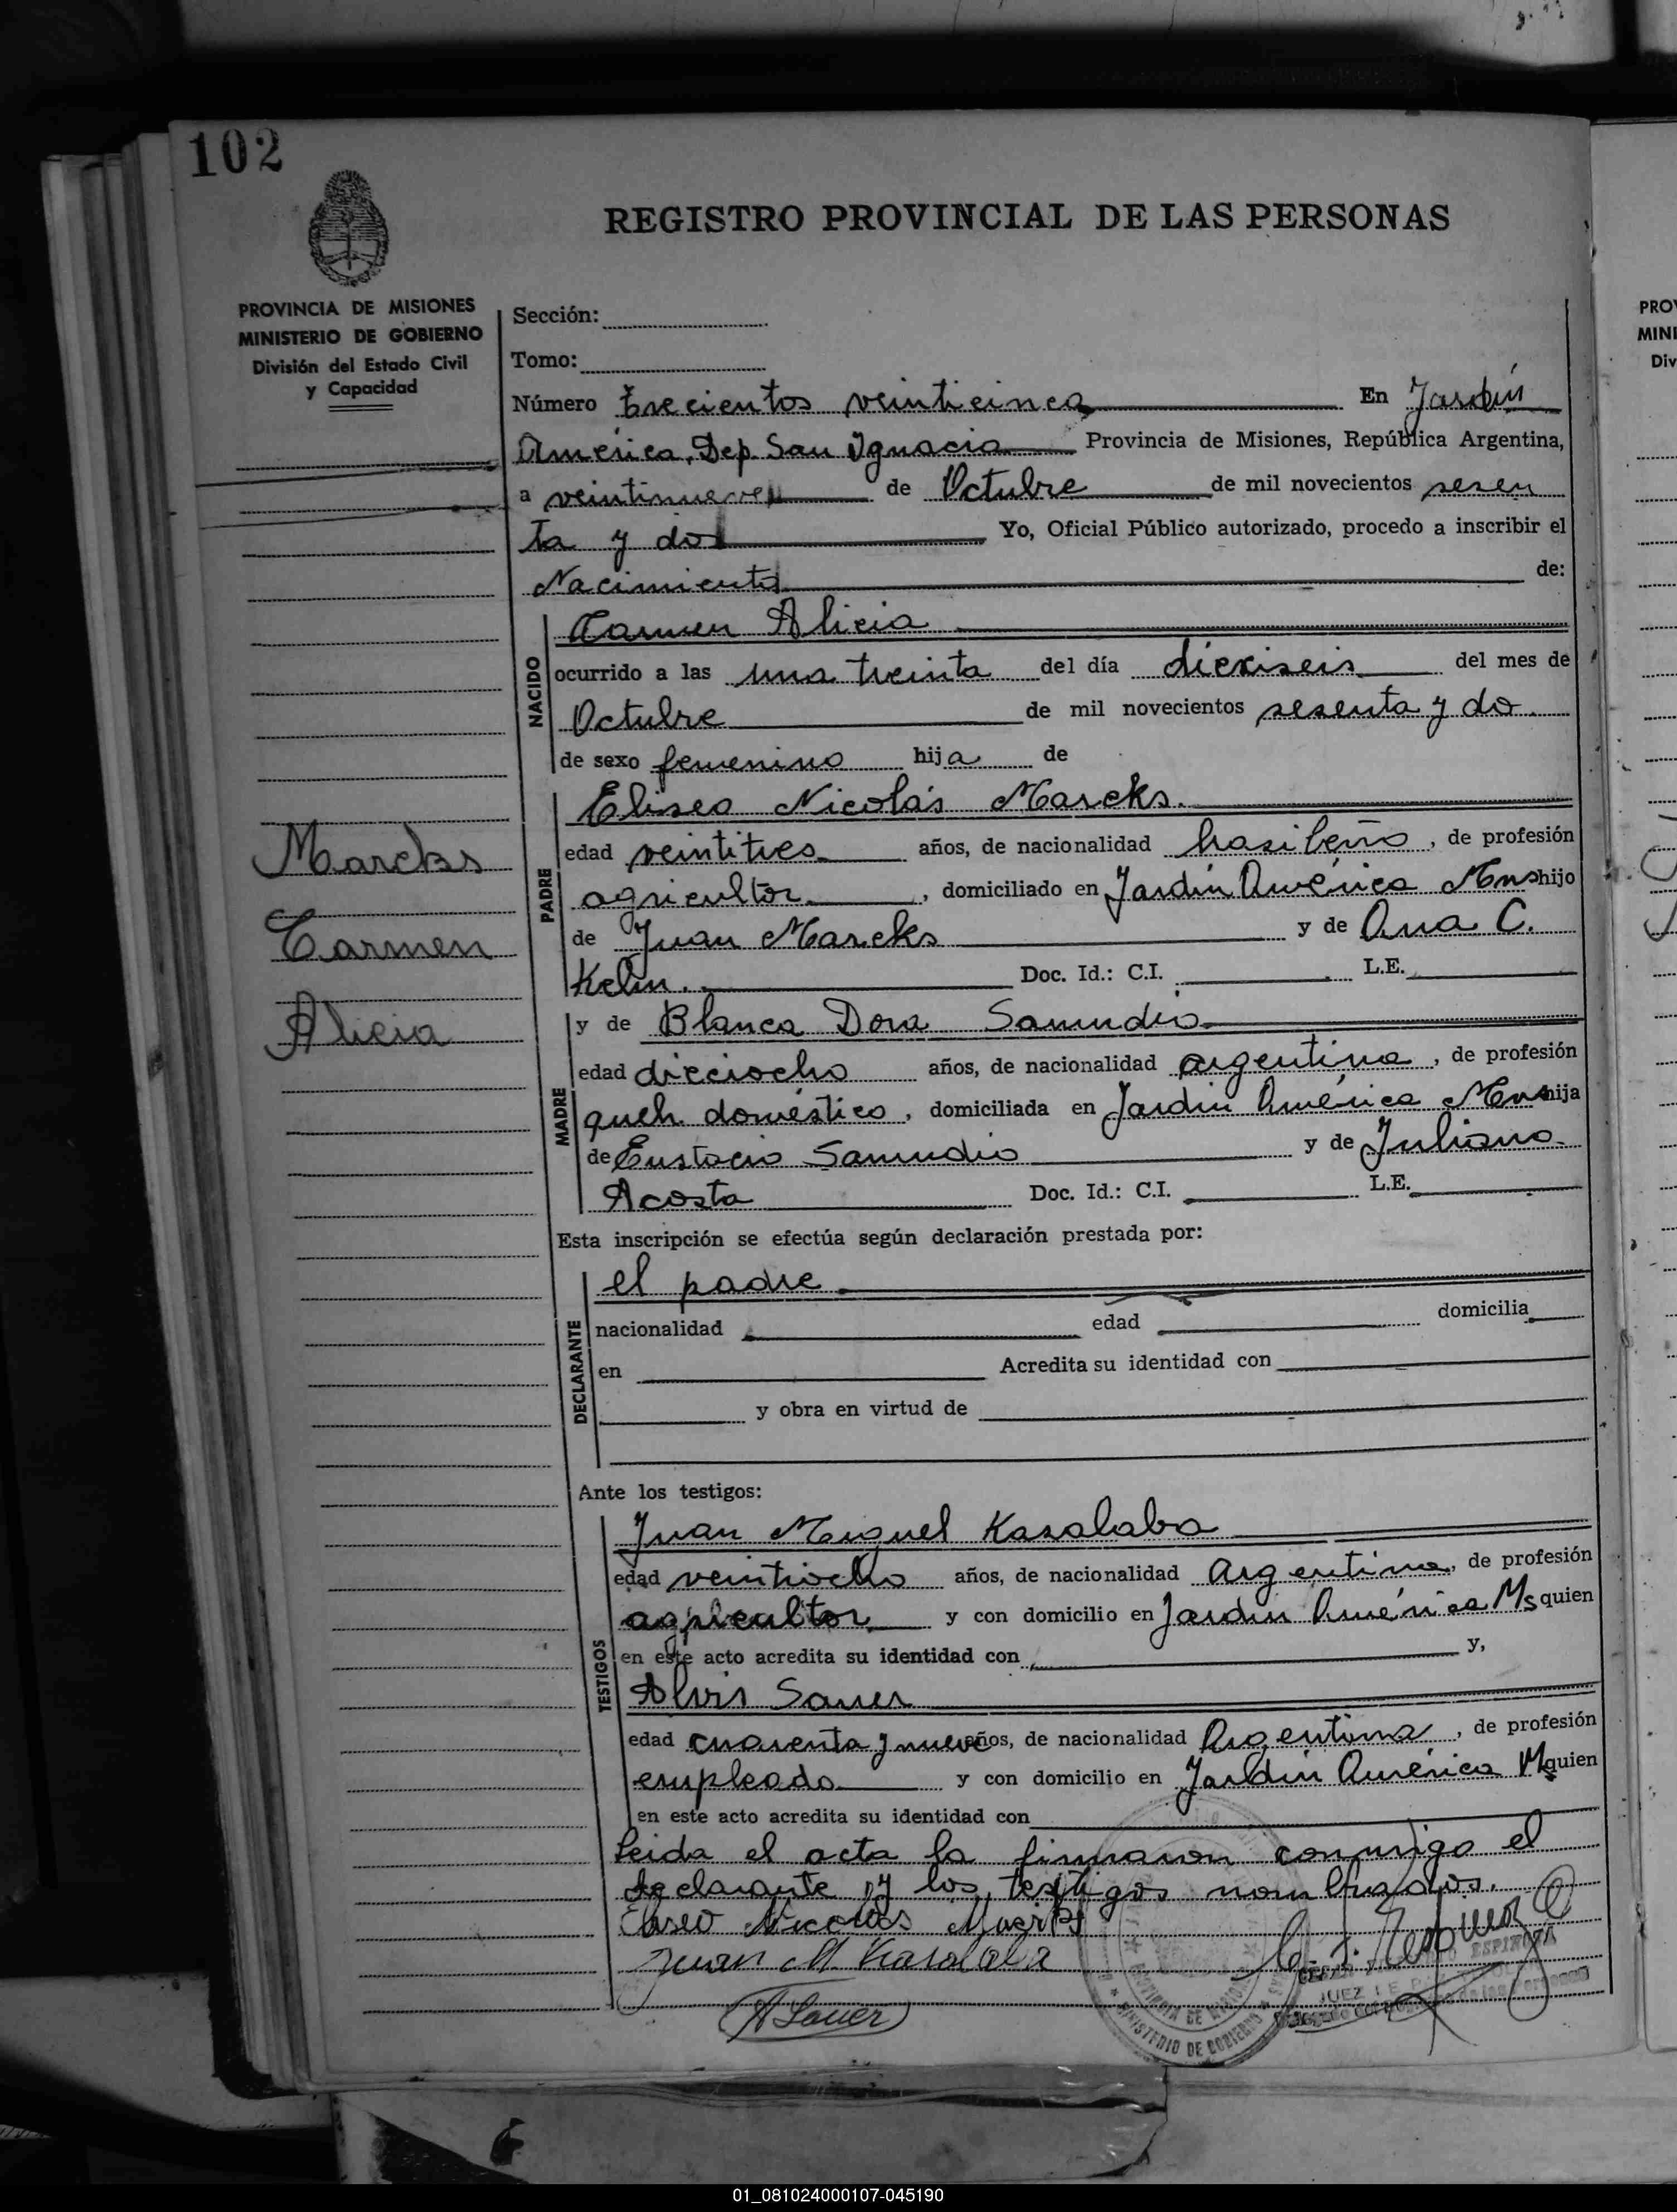 102
REGISTRO PROVINCIAL DE LAS PERSONAS
PROVINCIA DE MISIONES
MINISTERIO DE GOBIERNO
División del Estado Civil
y Capacidad
Marcks
Carmen
Alicia
Sección:
Tomo:
Número trecientos veinticinco En Jardín
América, Dep. San Ignacio Provincia de Misiones, República Argentina,
a veintinueve de Octubre de mil novecientos sesen
ta y dos Yo, Oficial Público autorizado, procedo a inscribir el
Nacimiento de:
NACIDO
Carmen Alicia
ocurrido a las una treinta del día dieciseis del mes de
Octubre de mil novecientos sesenta y do
de sexo femenino hija de
PADRE
Eliseo Nicolás Marcks.
edad veintitres años, de nacionalidad brasileño, de profesión
agricultor, domiciliado en Jardín América Mns hijo
de Juan Marcks y de Ana C.
Kelm. Doc. Id.: C.I. L.E.
MADRE
y de Blanca Dora Samudio
edad dieciocho años, de nacionalidad argentina, de profesión
queh. doméstico, domiciliada en Jardín América Mns hija
de Eustacio Samudio y de Juliana
Acosta Doc. Id.: C.I. L.E.
Esta inscripción se efectúa según declaración prestada por:
DECLARANTE
el padre
nacionalidad edad domicilia
en Acredita su identidad con
y obra en virtud de
Ante los testigos:
TESTIGOS
Juan Miguel Kasalaba
edad veintiocho años, de nacionalidad Argentina, de profesión
agricultor y con domicilio en Jardín América Ms quien
en este acto acredita su identidad con y,
Alvis Sauer
edad cuarenta y nueve años, de nacionalidad Argentina, de profesión
empleado y con domicilio en Jardín América M quien
en este acto acredita su identidad con
Leida el acta la firmaron conmigo el
declarante y los testigos nombrados.
Eliseo Nicolas Marcks
Juan M. Kasalaba
A Sauer
ESPINOZA
JUEZ DE PAZ
PROVINCIA DE MISIONES
MINISTERIO DE GOBIERNO
PRO
MINI
Div
01_081024000107-045190